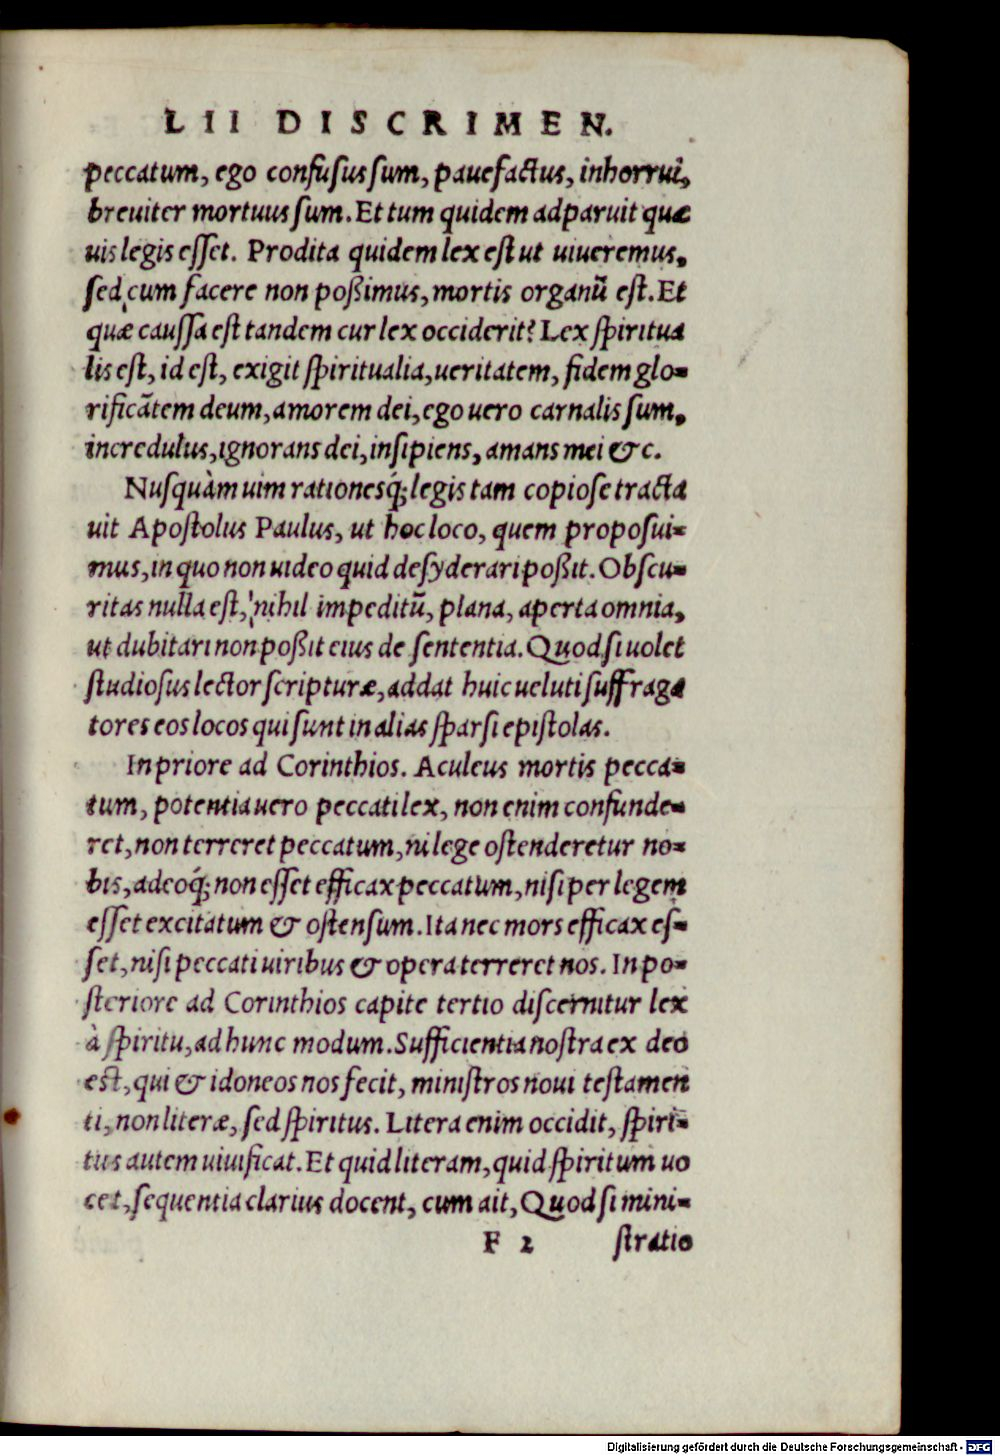 LII DISCRIMEN.
peccatum, ego confusus sum, pauefactus, inhorrui,
breuiter mortuus sum. Et tum quidem adparuit quæ
uis legis esset. Prodita quidem lex est ut uiueremus,
sed cum facere non poßimus, mortis organũ est. Et
quæ caussa est tandem cur lex occiderit? Lex spiritua
lis est, id est, exigit spiritualia, ueritatem, fidem glo-
rificãtem deum, amorem dei, ego uero carnalis sum,
incredulus, ignorans dei, insipiens, amans mei &c.
Nusquàm uim rationesq́; legis tam copiose tracta
uit Apostolus Paulus, ut hoc loco, quem proposui-
mus, in quo non uideo quid desyderari poßit. Obscu-
ritas nulla est, nihil impeditũ, plana, aperta omnia,
ut dubitari non poßit eius de sententia. Quod si uolet
studiosus lector scripturæ, addat huic ueluti suffraga
tores eos locos qui sunt in alias sparsi epistolas.
In priore ad Corinthios. Aculeus mortis pecca-
tum, potentia uero peccati lex, non enim confunde-
ret, non terreret peccatum, ni lege ostenderetur no-
bis, adeoq́; non esset efficax peccatum, nisi per legem
esset excitatum & ostensum. Ita nec mors efficax es-
set, nisi peccati uiribus & opera terreret nos. In po-
steriore ad Corinthios capite tertio discernitur lex
à spiritu, ad hunc modum. Sufficientia nostra ex deo
est, qui & idoneos nos fecit, ministros noui testamen
ti, non literæ, sed spiritus. Litera enim occidit, spiri-
tus autem uiuificat. Et quid literam, quid spiritum uo
cet, sequentia clarius docent, cum ait, Quod si mini-
F 2 stratio
Digitalisierung gefördert durch die Deutsche Forschungsgemeinschaft - DFG